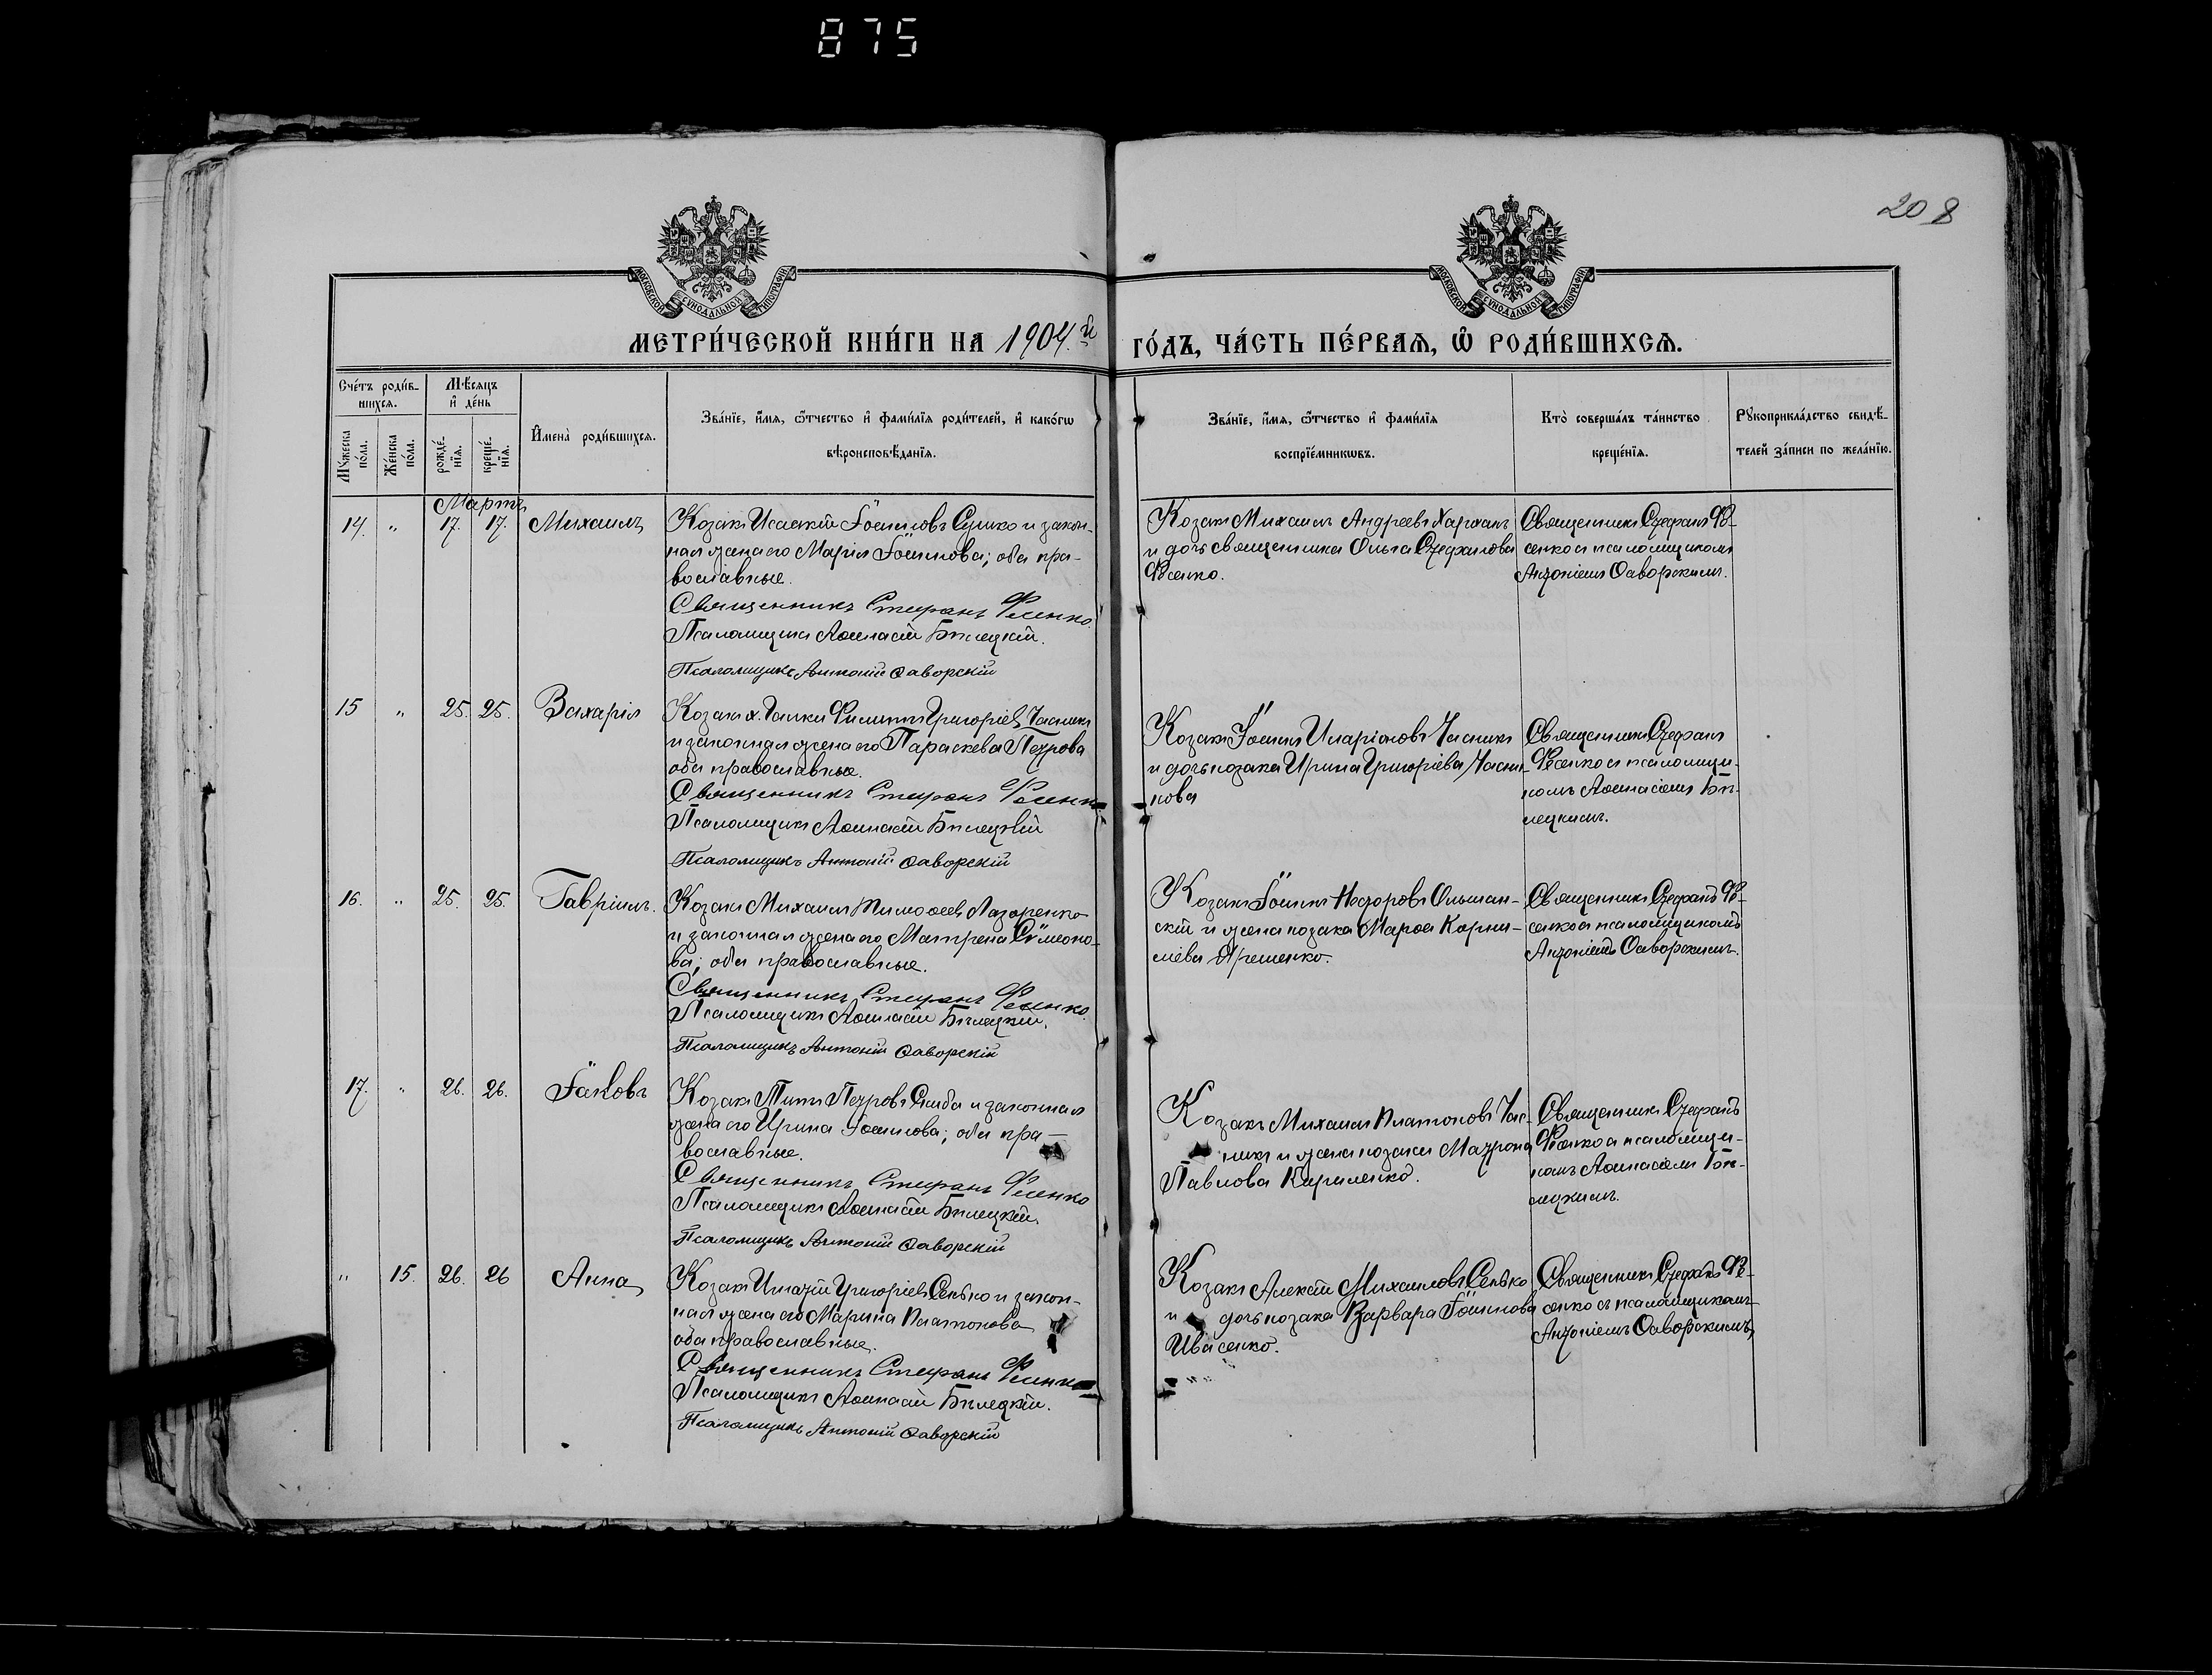 875
208
МОСКОВСКОЙ СѴНОДАЛЬНОЙ ТИПОГРАФІИ
МОСКОВСКОЙ СѴНОДАЛЬНОЙ ТИПОГРАФІИ
МЕТРИ́ЧЕСКОЙ КНИ́ГИ НА 1904.й ГО́ДЪ, ЧА́СТЬ ПЕ́РВАѦ, Ѡ҆ РОДИ́ВШИХСѦ.
Сче́тъ роди́в-
шихсѧ.
Мѣ́сѧцъ
и҆ де́нь
Мꙋ́жеска по́ла.
Же́нска по́ла.
рожде́-
нїѧ.
креще́-
нїѧ.
И҆мена̀ роди́вшихсѧ.
Зва́нїе, и҆́мѧ, ѻ҆́тчество и҆ фами́лїѧ роди́телей, и҆ како́гѡ
вѣроисповѣ́данїѧ.
Зва́нїе, и҆́мѧ, ѻ҆́тчество и҆ фами́лїѧ
воспрїе́мникѡвъ.
Кто̀ соверша́лъ та́инство
креще́нїѧ.
Рꙋкоприкла́дство свидѣ́-
телей за́писи по жела́нїю.
Мартъ
14. " 17. 17. Михаилъ
Козакъ Исаакій Іоанновъ Сушко и закон-
ная жена его Марія Іоаннова; оба пра-
вославные.
Священникъ Стефанъ Фесенко.
Псаломщикъ Аѳанасій Бѣлецкій.
Псаломщикъ Антоній Ѳаворскій
Козакъ Михаилъ Андреевъ
и дочь священника Ольга Стефанова
Фесенко.
Священникъ Стефанъ Фе-
сенко съ псаломщикомъ
Антоніемъ Ѳаворскимъ.
15 " 25. 25. Захарія
Козакъ х. Филиппъ Григоріевъ Часникъ
и законная жена его Параскева Петрова
оба православные.
Священникъ Стефанъ Фесенко
Псаломщикъ Аѳанасій Бѣлецкій
Псаломщикъ Антоній Ѳаворскій
Козакъ Іоаннъ Иларіоновъ Часникъ
и дочь козака Ирина Григоріева Часни-
кова
Священникъ Стефанъ
Фесенко съ псаломщи-
комъ Аѳанасіемъ Бѣ-
лецкимъ.
16. " 25. 25. Гавріилъ.
Козакъ Михаилъ Тимоѳеевъ Лазоренко
и законная жена его Матрена Сѵмеоно-
ва; оба православные.
Священникъ Стефанъ Фесенко.
Псаломщикъ Аѳанасій Бѣлецкій.
Псаломщикъ Антоній Ѳаворскій
Козакъ Іоаннъ Ѳедоровъ Ольшан-
скій и жена козака Марѳа Корни-
ліева
Священникъ Стефанъ Фе-
сенко съ псаломщикомъ
Антоніемъ Ѳаворскимъ.
17. " 26. 26. Іаковъ
Козакъ Титъ Петровъ и законная
жена его Ирина Іоаннова; оба пра-
вославные.
Священникъ Стефанъ Фесенко
Псаломщикъ Аѳанасій Бѣлецкій.
Псаломщикъ Антоній Ѳаворскій
Козакъ Михаилъ Платоновъ Час-
никъ и жена козака Матрона
Павлова Кириленко.
Священникъ Стефанъ
Фесенко съ псаломщи-
комъ Аѳанасіемъ Бѣ-
лецкимъ.
" 15. 26. 26 Анна
Козакъ Игнатій Григоріевъ Сенько и закон-
ная жена его Марина Платонова
оба православные.
Священникъ Стефанъ Фесенко
Псаломщикъ Аѳанасій Бѣлецкій.
Псаломщикъ Антоній Ѳаворскій
Козакъ Алексій Михаиловъ Сенько
и дочь козака Варвара Іоаннова
Ивасенко.
Священникъ Стефанъ Фе-
сенко съ псаломщикомъ
Антоніемъ Ѳаворскимъ